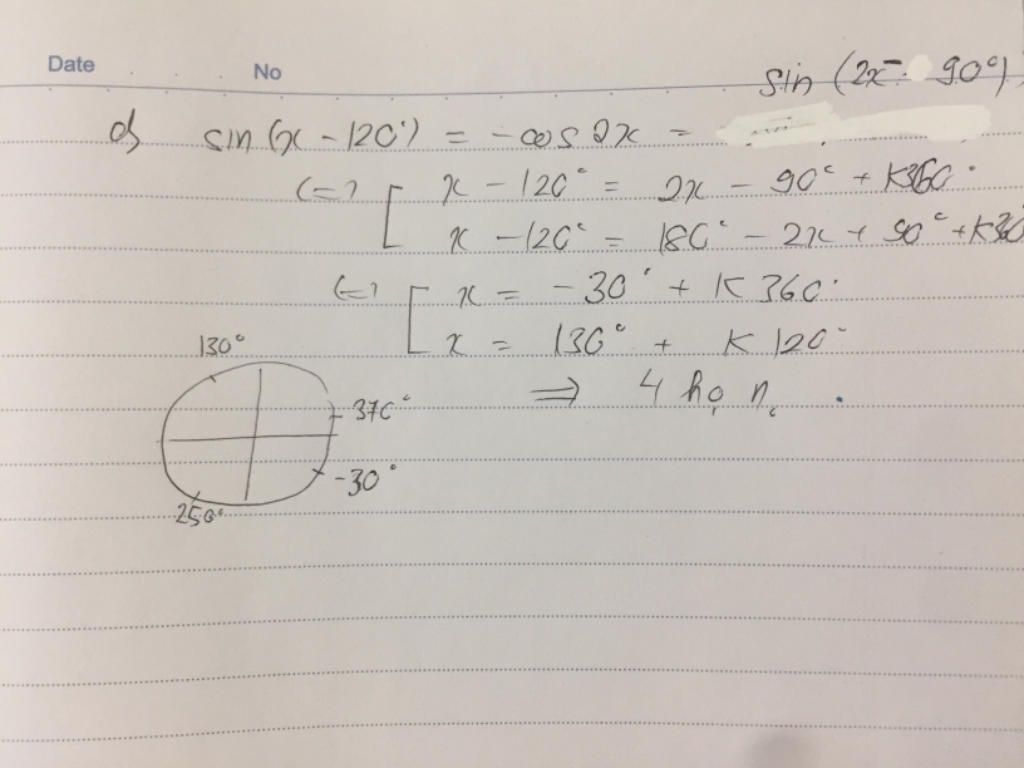 Date No
sin (2x - 90°)
d) sin (x - 120°) = - cos 2x =
(=) [ x - 120° = 2x - 90° + K360°
x - 120° = 180° - 2x + 90° + K360
(=) [ x = -30° + K 360°
x = 130° + K 120°
130°
⇒ 4 họ n.
370°
-30°
250°